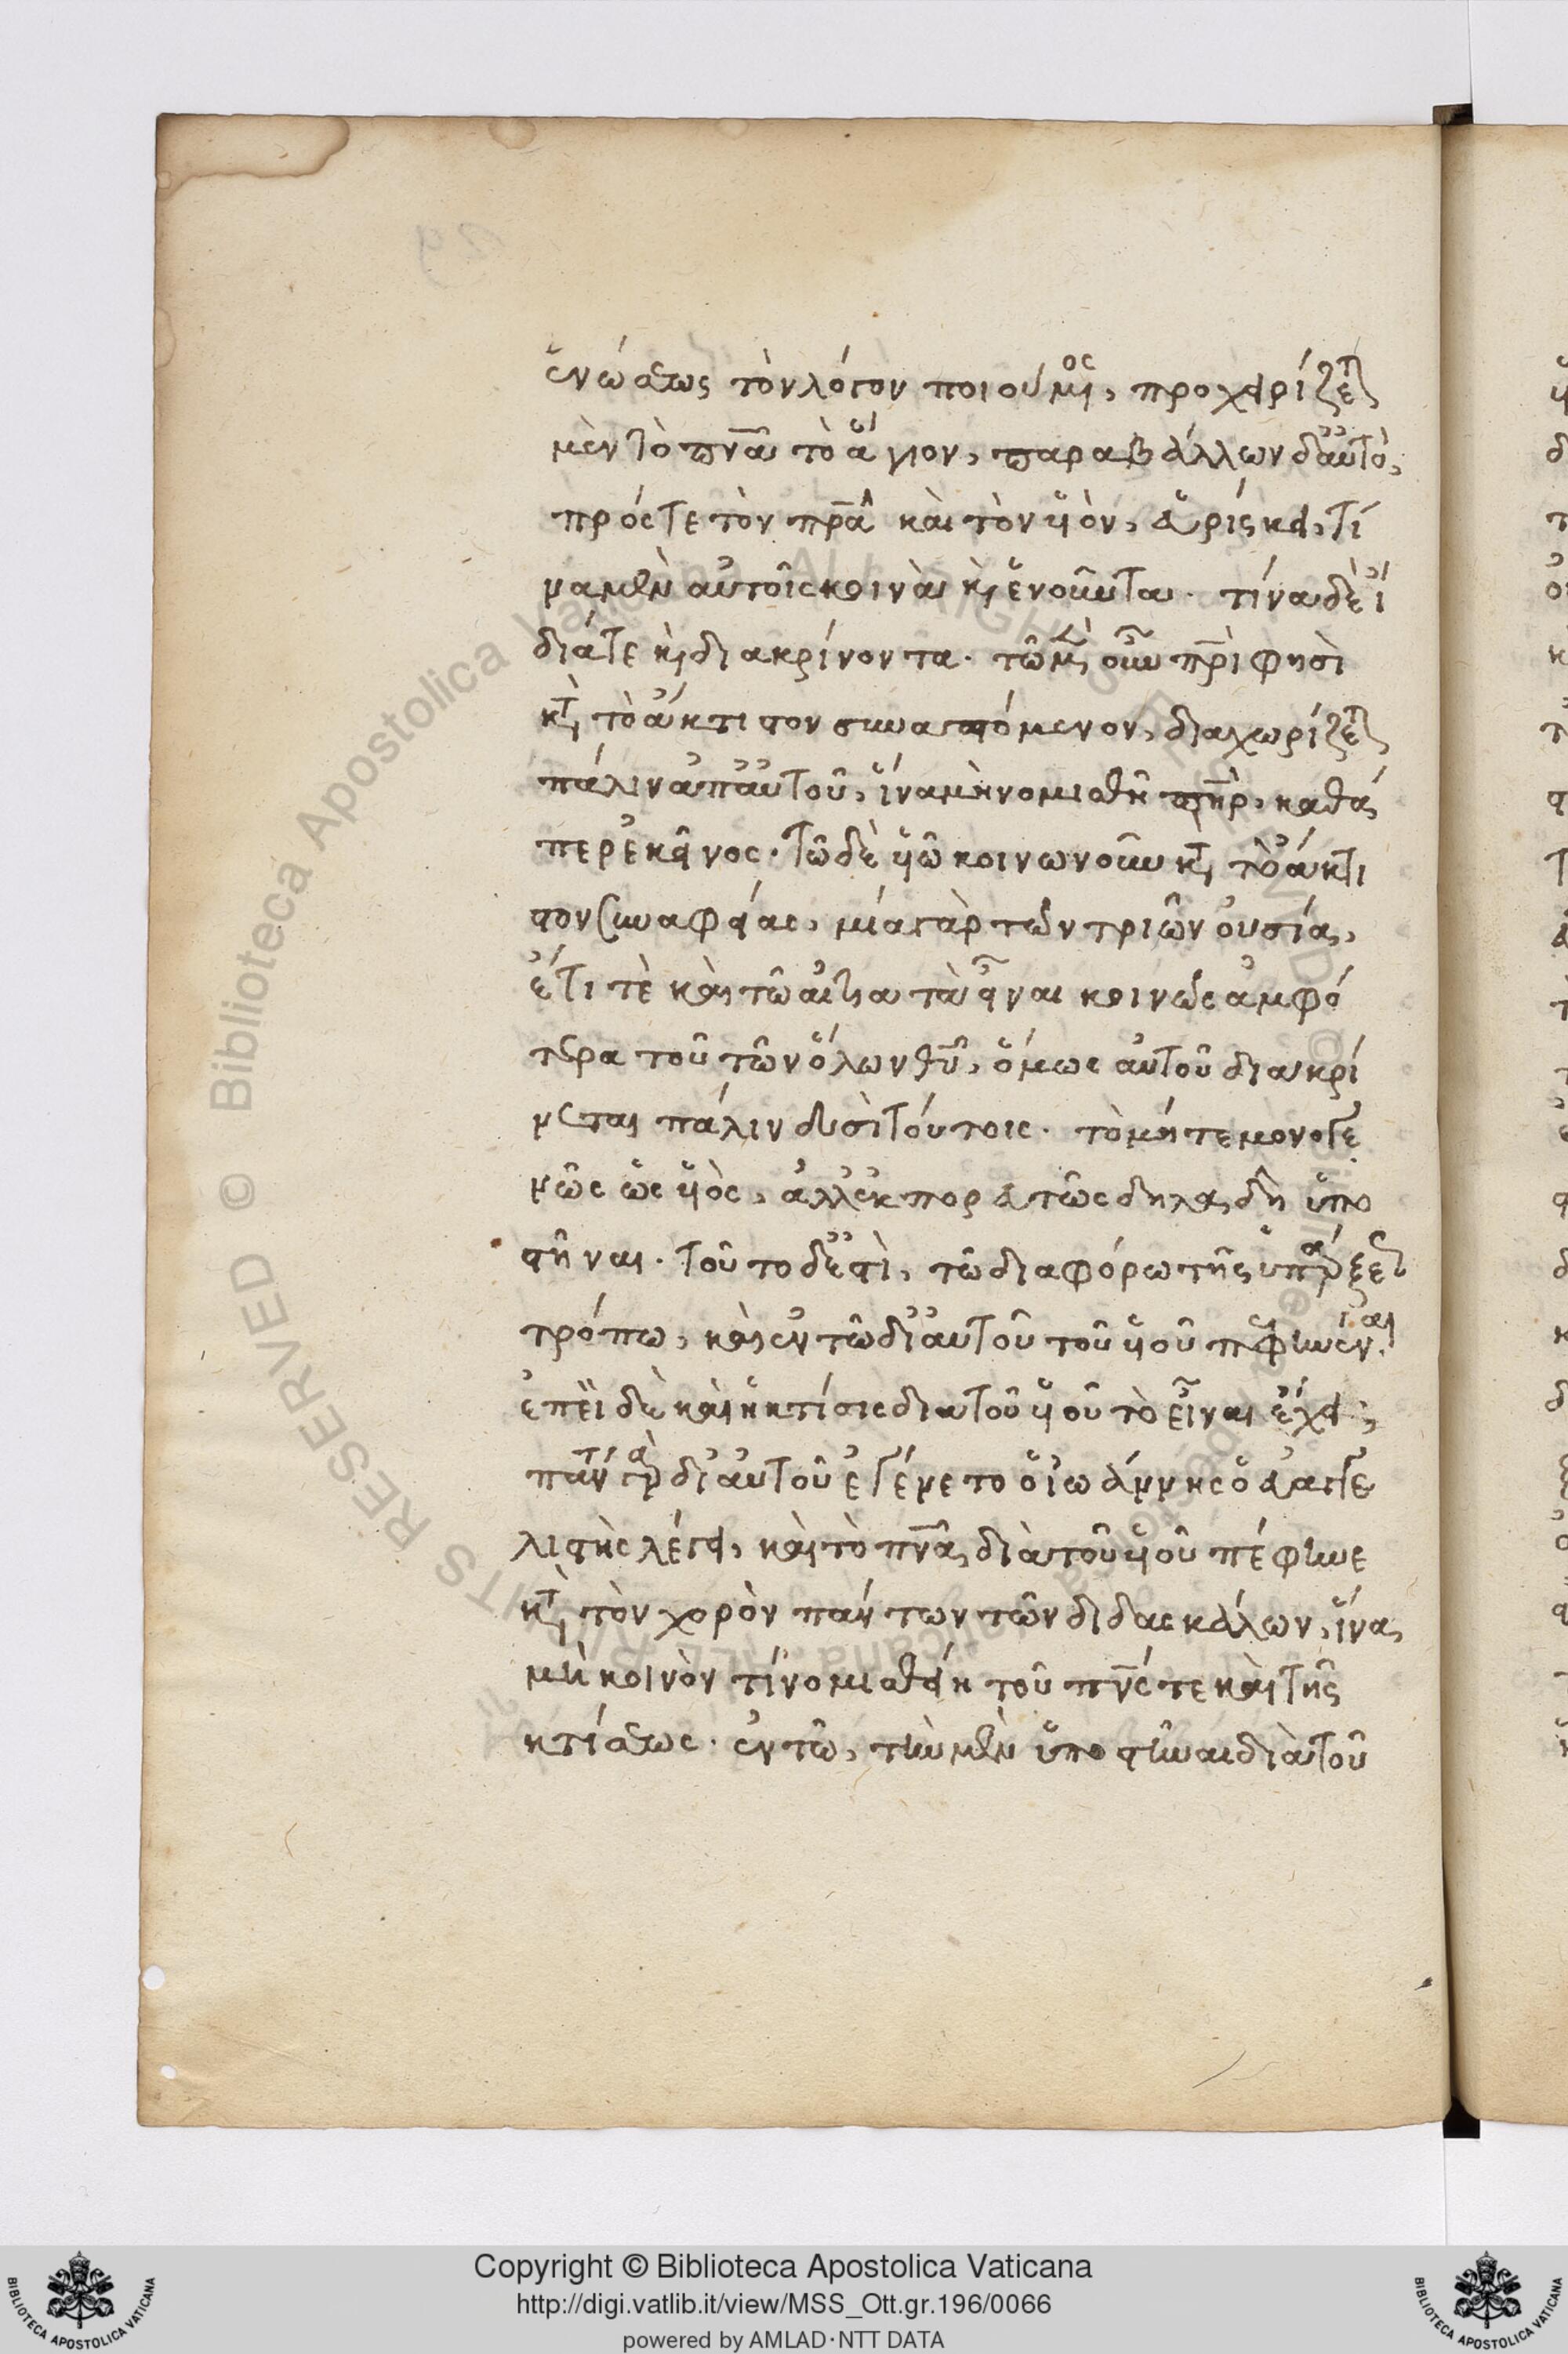 ἑνώσεως τὸν λόγον ποιούμ(εν)ος, προχειρίζετ(αι)
μὲν τὸ πν̅α τὸ ἅγιον, παραβάλλων δ' αὐτὸ,
πρός τε τὸν πρ̅α καὶ τὸν υἱὸν, εὑρίσκει, τί
να μὲν αὐτοῖς κοινὰ κ(αὶ) ἑνοῦντα. τίνα δὲ ἴ
διά τε κ(αὶ) διακρίνοντα. τῶ μ(ὲν) οὖν πρ̅ὶ φησὶ
κ(α)τ(ὰ) τὸ ἄκτιστον συναπτόμενον, διαχωρίζετ(αι)
πάλιν ἀπ' αὐτοῦ, ἵνα μὴ νομισθῆ πη̅ρ, καθά
περ ἐκεῖνος. τῶ δὲ υἱῶ κοινωνοῦν κ(α)τ(ὰ) τὸ ἄκτι
στον συναφείας, μία γὰρ τῶν τριῶν οὐσία,
ἔτι τὲ καὶ τῶ αἰτιατὰ εἶναι κοινῶς ἀμφό
τερα τοῦ τῶν ὅλων θ̅υ, ὅμως αὐτοῦ διακρί
νεται πάλιν δυσὶ τούτοις. τὸ μήτε μονογε
νῶς ὡς υἱὸς, ἀλλ' ἐκπορευτῶς δηλαδὴ ὑπο
στῆναι. τοῦτο δ' ἐστὶ, τῶ διαφόρω τῆς ὑπάρξε(ως)
τρόπω, καὶ ἐν τῶ δι' αὐτοῦ τοῦ υἱοῦ πεφηνέναι.
ἐπεὶ δὲ καὶ ἡ κτίσις διὰ τοῦ υἱοῦ τὸ εἶναι ἔχει,
πάντ(α) γὰρ δι' αὐτοῦ ἐγένετο ὁ ἰωάννης ὁ εὐαγγε
λιστὴς λέγει, καὶ τὸ πν̅α διὰ τοῦ υἱοῦ πέφηνε
κ(α)τ(ὰ) τὸν χορὸν πάντων τῶν διδασκάλων, ἵνα
μὴ κοινὸν τί νομισθείη τοῦ πν̅ς τε καὶ τῆς
κτίσεως. ἐν τῶ, τὴν μὲν ὑποστῆναι διὰ τοῦ
Copyright © Biblioteca Apostolica Vaticana
http://digi.vatlib.it/view/MSS_Ott.gr.196/0066
powered by AMLAD·NTT DATA